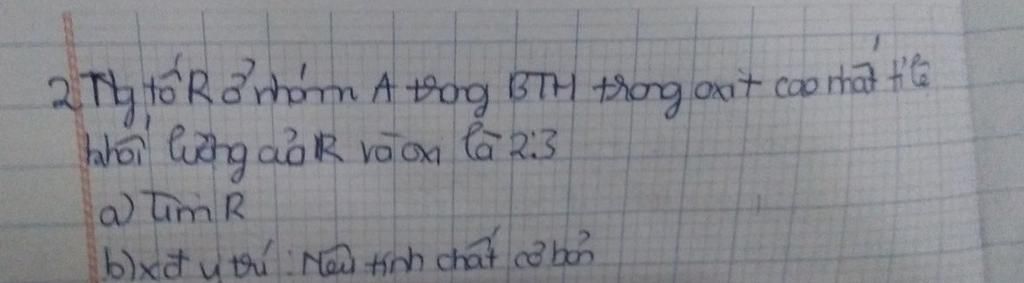 2, Ng tố R ở nhóm A trong BTH trong oxit cao nhất tỉ lệ
khối lượng của R và oxi là 2:3
a) Tìm R
b) xđ vị trí : Nêu tính chất cơ bản